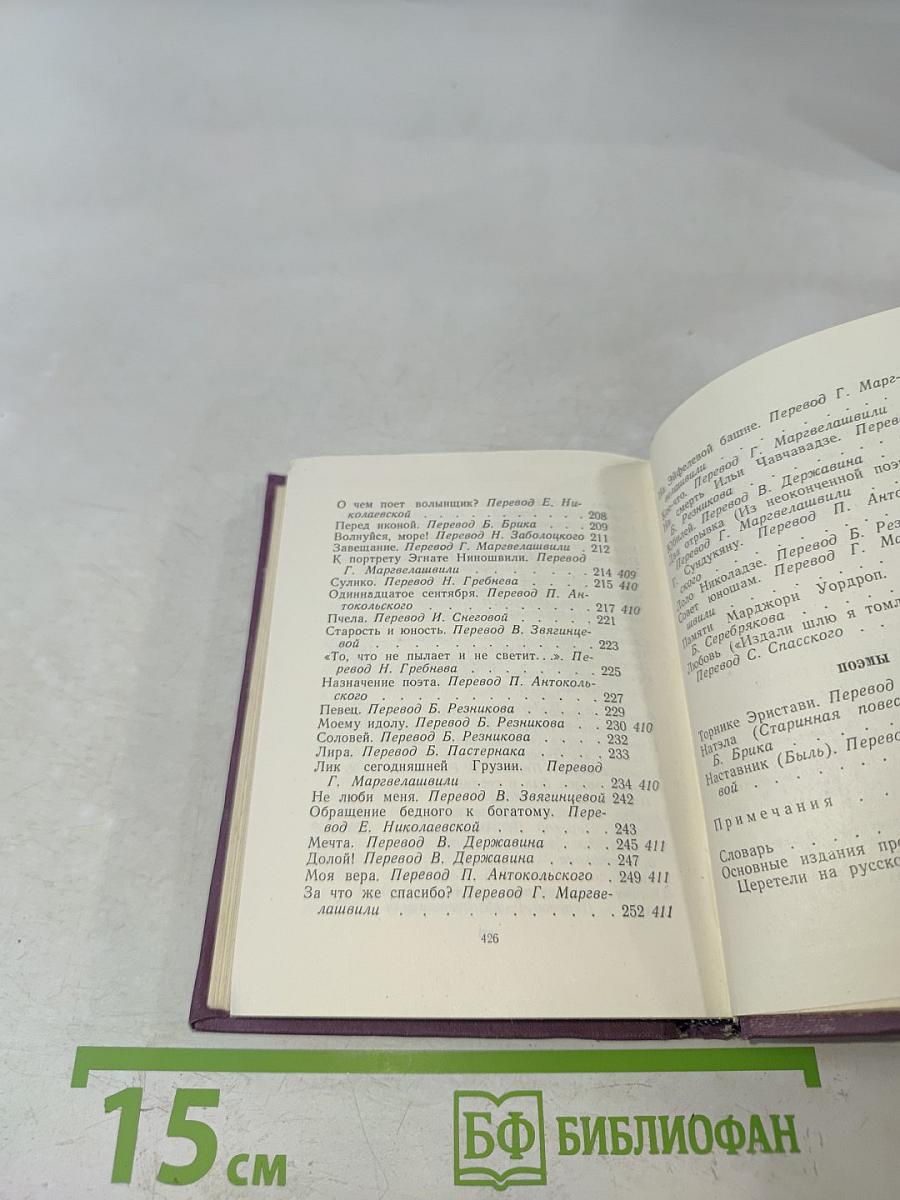 О чем поет волынщик? Перевод Е. Ни-
колаевской . . . . . . . . . . . 208
Перед иконой. Перевод Б. Брика . . . . 209
Волнуйся, море! Перевод Н. Заболоцкого 211
Завещание. Перевод Г. Маргвелашвили . 212
К портрету Эгнате Ниношвили. Перевод
Г. Маргвелашвили . . . . . . . . . 214 409
Сулико. Перевод Н. Гребнева . . . . . 215 410
Одиннадцатое сентября. Перевод П. Ан-
токольского . . . . . . . . . . . 217 410
Пчела. Перевод И. Снеговой . . . . . . 221
Старость и юность. Перевод В. Звягинце-
вой . . . . . . . . . . . . . . . 223
«То, что не пылает и не светит...». Пе-
ревод Н. Гребнева . . . . . . . . . 225
Назначение поэта. Перевод П. Антоколь-
ского . . . . . . . . . . . . . . 227
Певец. Перевод Б. Резникова . . . . . . 229
Моему идолу. Перевод Б. Резникова . . . 230 410
Соловей. Перевод Б. Резникова . . . . . 232
Лира. Перевод Б. Пастернака . . . . . . 233
Лик сегодняшней Грузии. Перевод
Г. Маргвелашвили . . . . . . . . . 234 410
Не люби меня. Перевод В. Звягинцевой 242
Обращение бедного к богатому. Пере-
вод Е. Николаевской . . . . . . . . 243
Мечта. Перевод В. Державина . . . . 245 411
Долой! Перевод В. Державина . . . . . 247
Моя вера. Перевод П. Антокольского . . 249 411
За что же спасибо? Перевод Г. Маргве-
лашвили . . . . . . . . . . . . . 252 411
426
На Эйфелевой башне. Перевод Г. Марг-
велашвили . . . . . . .
Кое-что. Перевод Г. Маргвелашвили
На смерть Ильи Чавчавадзе. Перево
Б. Резникова . . . . .
Юбилей. Перевод В. Державина
Два отрывка (Из неоконченной поэ
Перевод Г. Маргвелашвили . .
Г. Сундукяну. Перевод П. Анто
ского . . . . . . .
Лоло Николадзе. Перевод Б. Рез
Совет юношам. Перевод Г. Ма
швили . . . . . .
Памяти Марджори Уордроп.
Б. Серебрякова . . . .
Любовь («Издали шлю я томл
Перевод С. Спасского . . .
ПОЭМЫ
Торнике Эристави. Перевод
Натэла (Старинная повес
Б. Брика . . . . .
Наставник (Быль). Перево
вой . . . . . .
Примечания . .
Словарь . . . . .
Основные издания пр
Церетели на русско
15 см
БФ БИБЛИОФАН